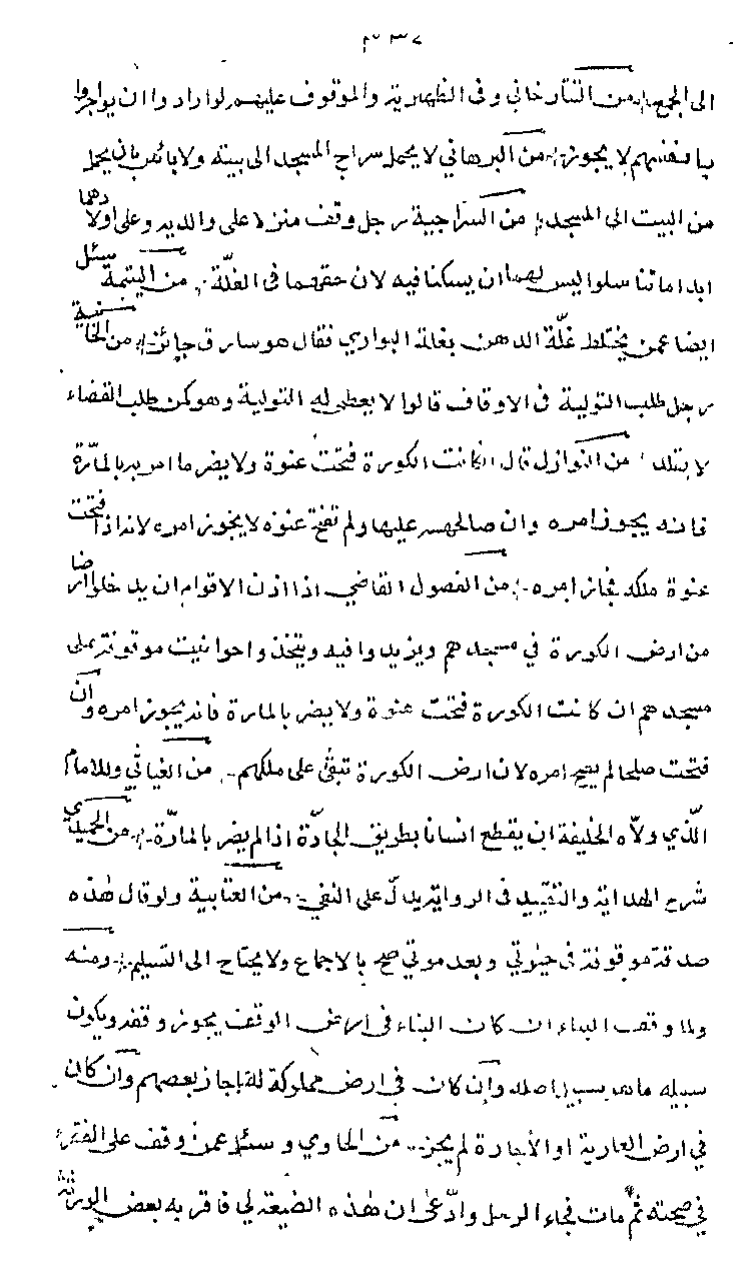 الى الجمع من التتارخاني وفى الظهيرية والموقوف عليهم لو ارادوا ان يواجروا
بانفسهم لا يجوز من البرهاني لا يحمل سراج المسجد الى بيته ولا بائس بان يحمل
من البيت الى المسجد من السراجية رجل وقف منزلا على والديه وعلى اولادهما
ابدا ما تناسلوا ليس لهما ان يسكنا فيه لان حقهما فى الغلّة من اليتمة سئل
ايضا عمن يختلط غلّة الدهن بغلة البواري فقال هو سارق جائن من الخانية
رجل طلب التولية فى الاوقاف قالوا لا يعطى له التولية وهو كمن طلب القضاء
لا يقلد من النوازل قال انكانت الكورة فتحت عنوة ولا يضر ما امر به بالمارّة
فانه يجوز امره وان صالحهم عليها ولم تفتح عنوة لا يجوز امره لانه اذا فتحت
عنوة ملكه فجاز امره من الفصول القاضي اذا اذن الاقوام ان يدخلوا ارضا
من ارض الكورة في مسجدهم ويزيدوا فيه ويتخذوا حوانيت موقوفة على
مسجدهم ان كانت الكورة فتحت عنوة ولا يضر بالمارة فانه يجوز امره وان
فتحت صلحا لم يصح امره لان ارض الكورة تبقى على ملكهم من الغياثي وللامام
الّذي ولاّه الخليفة ان يقطع انسانا بطريق الجادّة اذا لم يضر بالمارّة من الحميدي
شرح الهداية والتقييد فى الرواية يدلّ على النفي من العتابية ولو قال هذه
صدقة موقوفة فى حيوتي وبعد موتي صح بالاجماع ولا يحتاج الى التسليم ومنه
ولو وقف البناء ان كان البناء فى ارض الوقف يجوز وقفه ويكون
سبيله ما هو سبيل اصله وان كان فى ارض مملوكة له اجاز بعضهم وان كان
في ارض العارية او الأجارة لم يجز من الحاوي وسئل عمن وقف على الفقراء
في صحته ثم مات فجاء الرجل وادّعى ان هذه الضيعة لي فاقر به بعض الورثة